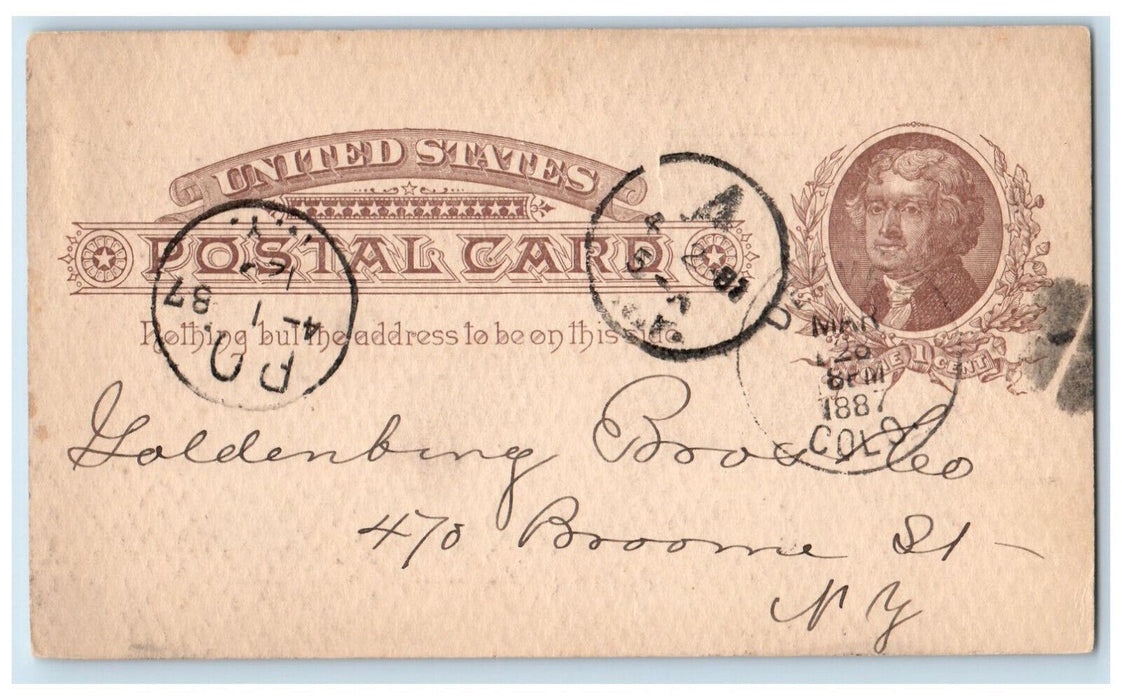 UNITED STATES
POSTAL CARD
Nothing but the address to be on this side.
ONE 1 CENT
MAR
28
8PM
1887
COLO
P.O.
4-1
87
N.Y.
A
87
Goldenburg Bros & Co
470 Broome St -
N Y